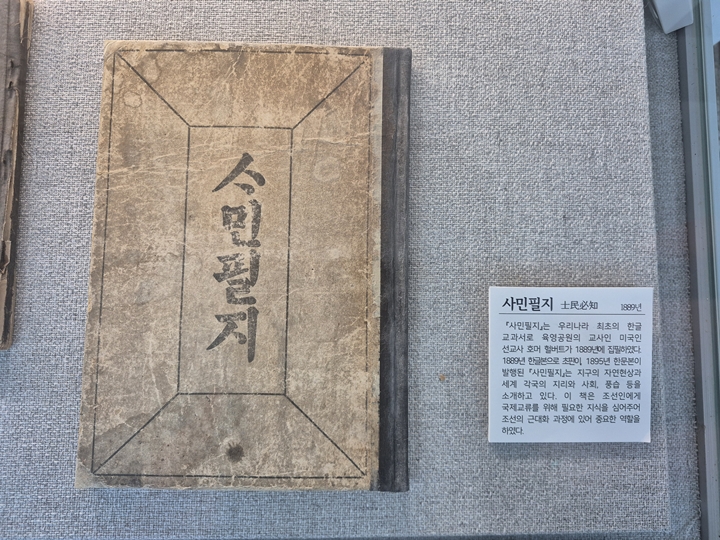 사민필지
사민필지 士民必知 1889년
『사민필지』는 우리나라 최초의 한글
교과서로 육영공원의 교사인 미국인
선교사 호머 헐버트가 1889년에 집필하였다.
1889년 한글본으로 초판이, 1895년 한문본이
발행된 『사민필지』는 지구의 자연현상과
세계 각국의 지리와 사회, 풍습 등을
소개하고 있다. 이 책은 조선인에게
국제교류를 위해 필요한 지식을 심어주어
조선의 근대화 과정에 있어 중요한 역할을
하였다.